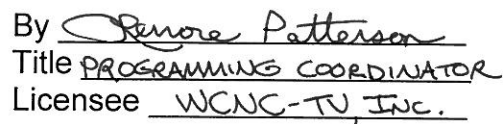 By Lenore Patterson
Title PROGRAMMING COORDINATOR
Licensee WCNC-TV, INC.